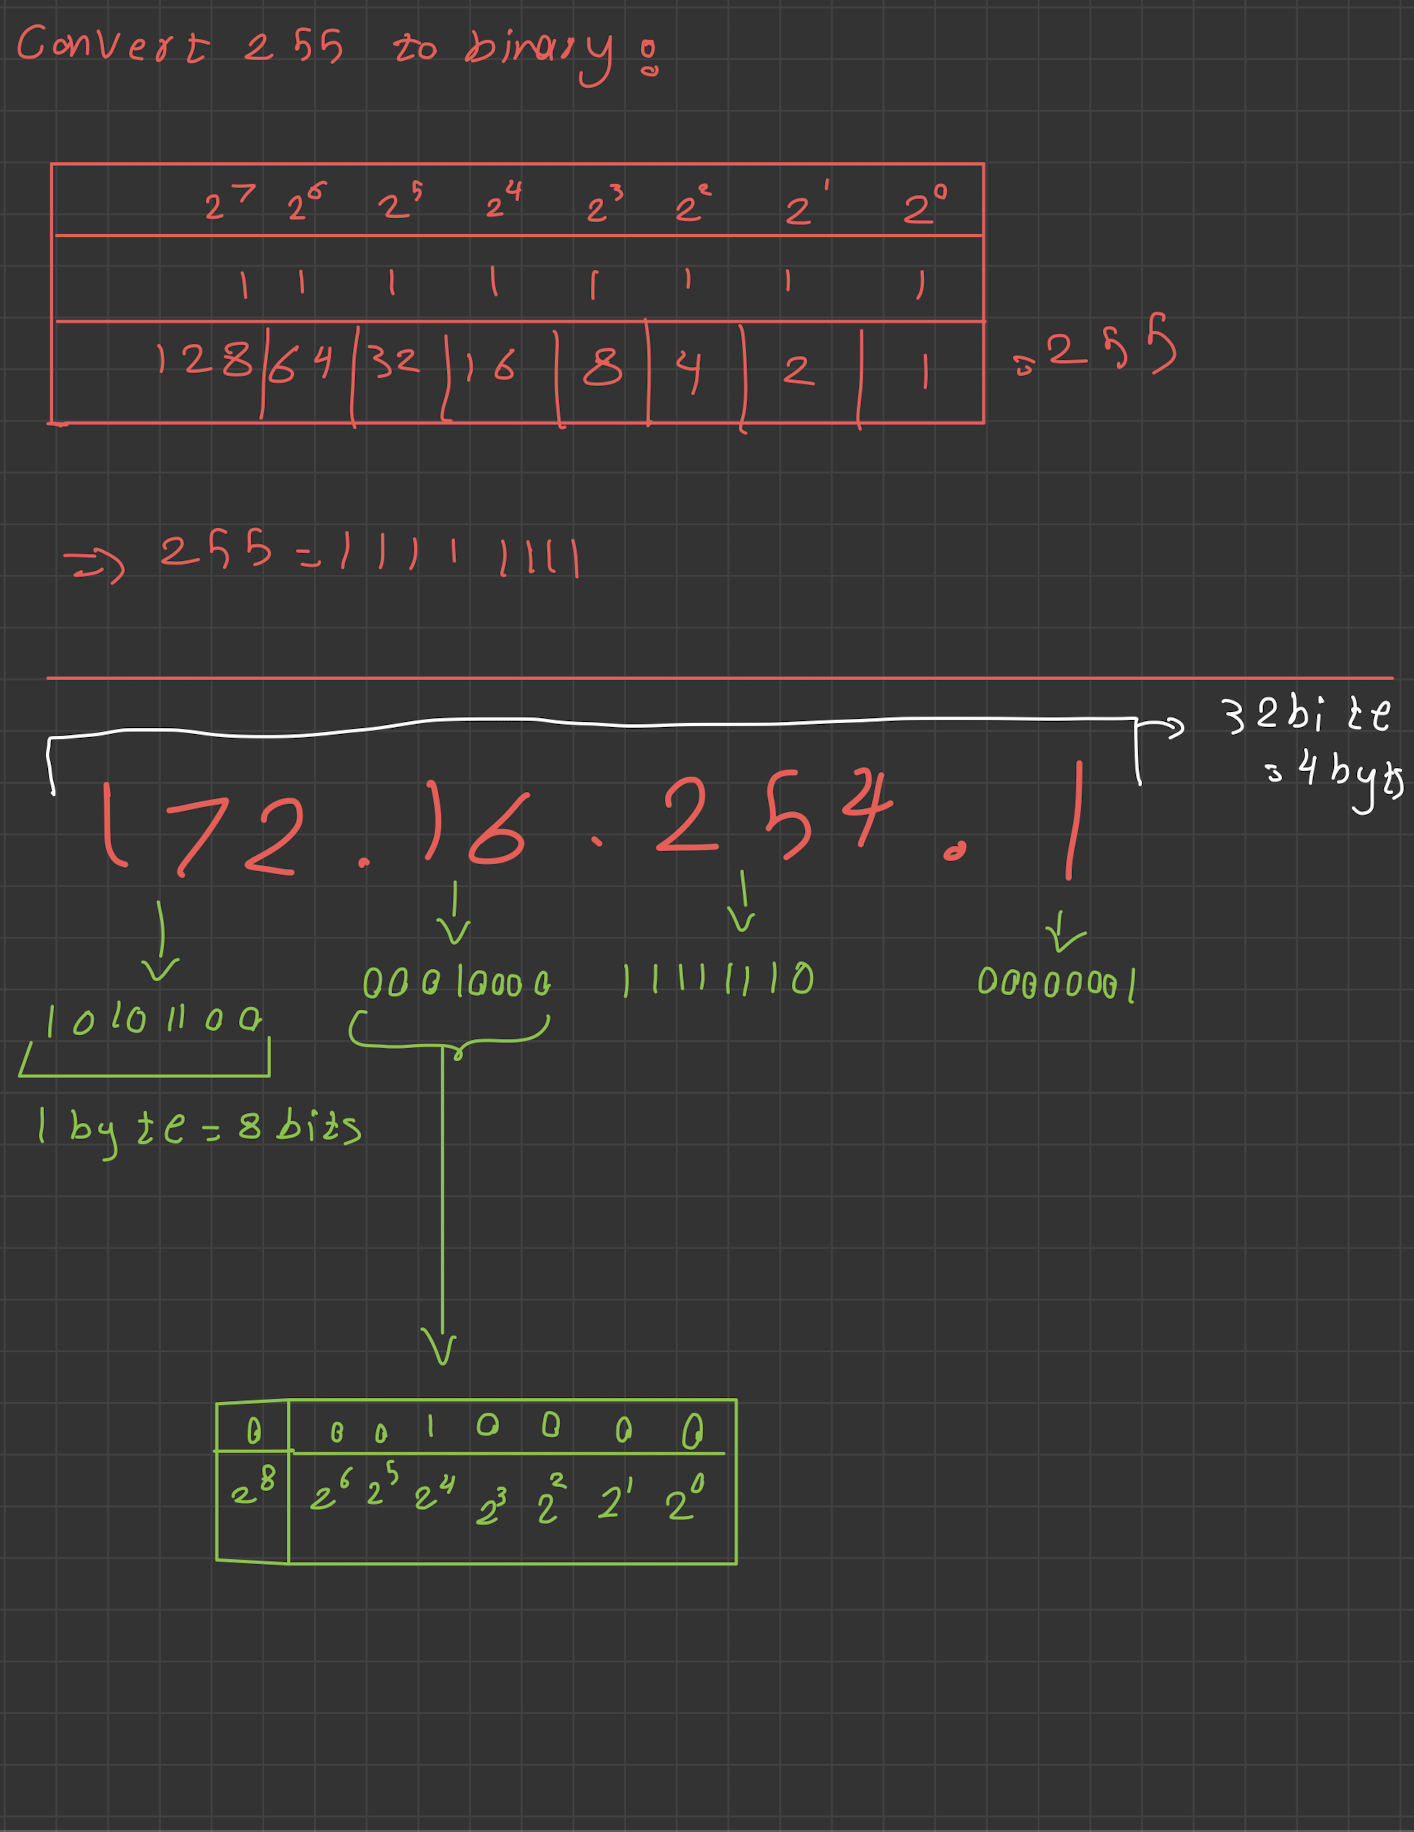 Convert 255 to binary:
2⁷ 2⁶ 2⁵ 2⁴ 2³ 2² 2¹ 2⁰
1 1 1 1 1 1 1 1
128 | 64 | 32 | 16 | 8 | 4 | 2 | 1 = 255
=> 255 = 1111 1111
32 bite
= 4 byts
172 . 16 . 254 . 1
10101100 00010000 11111110 00000001
1 byte = 8 bits
0 0 0 1 0 0 0 0
2⁸ 2⁶ 2⁵ 2⁴ 2³ 2² 2¹ 2⁰